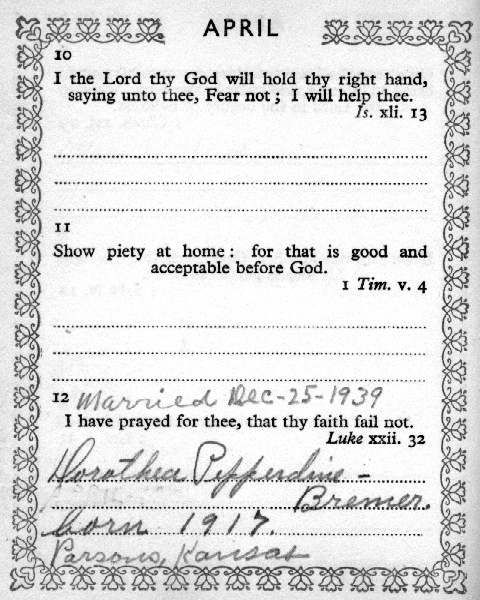 APRIL
10
I the Lord thy God will hold thy right hand,
saying unto thee, Fear not; I will help thee.
Is. xli. 13
11
Show piety at home: for that is good and
acceptable before God.
1 Tim. v. 4
12 Married Dec-25-1939
I have prayed for thee, that thy faith fail not.
Luke xxii. 32
Dorothea Pepperdine-
Bremer.
born 1917.
Parsons, Kansas